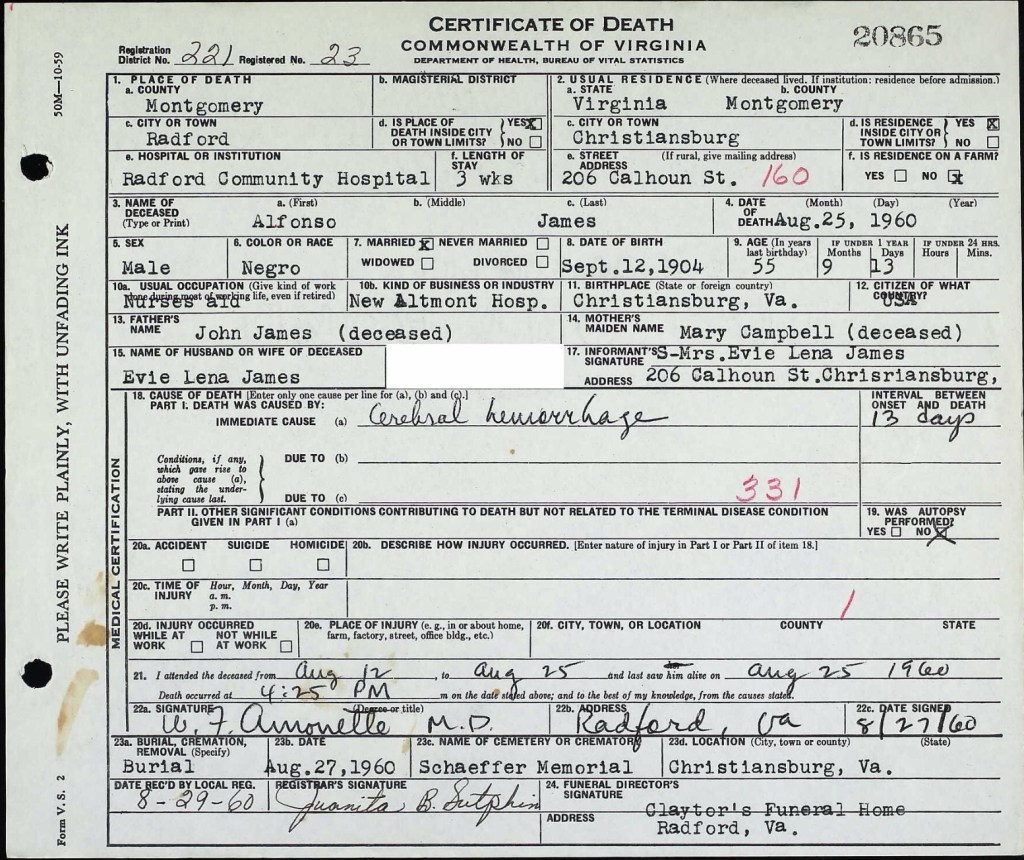 CERTIFICATE OF DEATH
COMMONWEALTH OF VIRGINIA
DEPARTMENT OF HEALTH, BUREAU OF VITAL STATISTICS
20865
Registration District No. 221 Registered No. 23
50M—10-59
PLEASE WRITE PLAINLY, WITH UNFADING INK
Form V. S. 2
1. PLACE OF DEATH
a. COUNTY
Montgomery
b. MAGISTERIAL DISTRICT
2. USUAL RESIDENCE (Where deceased lived. If institution: residence before admission.)
a. STATE b. COUNTY
Virginia Montgomery
c. CITY OR TOWN
Radford
d. IS PLACE OF DEATH INSIDE CITY OR TOWN LIMITS? YES X NO
c. CITY OR TOWN
Christiansburg
d. IS RESIDENCE INSIDE CITY OR TOWN LIMITS? YES X NO
e. HOSPITAL OR INSTITUTION
Radford Community Hospital
f. LENGTH OF STAY
3 wks
e. STREET ADDRESS (If rural, give mailing address)
206 Calhoun St. 160
f. IS RESIDENCE ON A FARM?
YES NO X
3. NAME OF DECEASED (Type or Print)
a. (First) b. (Middle) c. (Last)
Alfonso James
4. DATE OF DEATH (Month) (Day) (Year)
Aug.25, 1960
5. SEX
Male
6. COLOR OR RACE
Negro
7. MARRIED X NEVER MARRIED
WIDOWED DIVORCED
8. DATE OF BIRTH
Sept.12,1904
9. AGE (In years last birthday)
55
IF UNDER 1 YEAR
Months Days
9 13
IF UNDER 24 HRS.
Hours Mins.
10a. USUAL OCCUPATION (Give kind of work done during most of working life, even if retired)
Nurses aid
10b. KIND OF BUSINESS OR INDUSTRY
New Altmont Hosp.
11. BIRTHPLACE (State or foreign country)
Christiansburg, Va.
12. CITIZEN OF WHAT COUNTRY?
USA
13. FATHER'S NAME John James (deceased)
14. MOTHER'S MAIDEN NAME Mary Campbell (deceased)
15. NAME OF HUSBAND OR WIFE OF DECEASED
Evie Lena James
17. INFORMANT'S SIGNATURE S-Mrs.Evie Lena James
ADDRESS 206 Calhoun St.Chrisriansburg,
MEDICAL CERTIFICATION
18. CAUSE OF DEATH [Enter only one cause per line for (a), (b) and (c).]
PART I: DEATH WAS CAUSED BY:
IMMEDIATE CAUSE (a) Cerebral hemorrhage
INTERVAL BETWEEN ONSET AND DEATH
13 days
Conditions, if any, which gave rise to above cause (a), stating the underlying cause last.
DUE TO (b)
DUE TO (c)
331
PART II. OTHER SIGNIFICANT CONDITIONS CONTRIBUTING TO DEATH BUT NOT RELATED TO THE TERMINAL DISEASE CONDITION GIVEN IN PART I (a)
19. WAS AUTOPSY PERFORMED?
YES NO X
20a. ACCIDENT SUICIDE HOMICIDE
20b. DESCRIBE HOW INJURY OCCURRED. [Enter nature of injury in Part I or Part II of item 18.]
20c. TIME OF INJURY Hour, Month, Day, Year
a. m.
p. m.
20d. INJURY OCCURRED
WHILE AT WORK NOT WHILE AT WORK
20e. PLACE OF INJURY (e. g., in or about home, farm, factory, street, office bldg., etc.)
20f. CITY, TOWN, OR LOCATION COUNTY STATE
21. I attended the deceased from Aug 12, to Aug 25 and last saw him alive on Aug 25 1960
Death occurred at 4:25 PM m on the date stated above; and to the best of my knowledge, from the causes stated.
22a. SIGNATURE (Degree or title)
W. F. Amonette M.D.
22b. ADDRESS
Radford, Va
22c. DATE SIGNED
8/27/60
23a. BURIAL, CREMATION, REMOVAL (Specify)
Burial
23b. DATE
Aug.27,1960
23c. NAME OF CEMETERY OR CREMATORY
Schaeffer Memorial
23d. LOCATION (City, town or county) (State)
Christiansburg, Va.
DATE REC'D BY LOCAL REG.
8-29-60
REGISTRAR'S SIGNATURE
Juanita B. Sutphin
24. FUNERAL DIRECTOR'S SIGNATURE
Claytor's Funeral Home
ADDRESS Radford, Va.